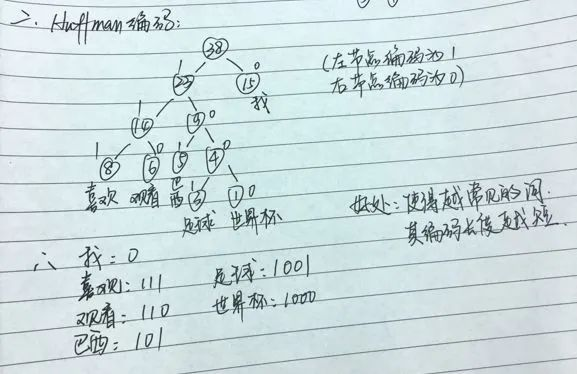 二、Huffman编码:
38
1 0
23 15 (左节点编码为1
我 右节点编码为0)
1 0
14 9
1 0 1 0
8 6 5 4
喜欢 观看 巴西 3 1 0
足球 世界杯
好处:使得越常见的词,
其编码长度越短.
∴ 我:0
喜观:111 足球:1001
观看:110 世界杯:1000
巴西:101